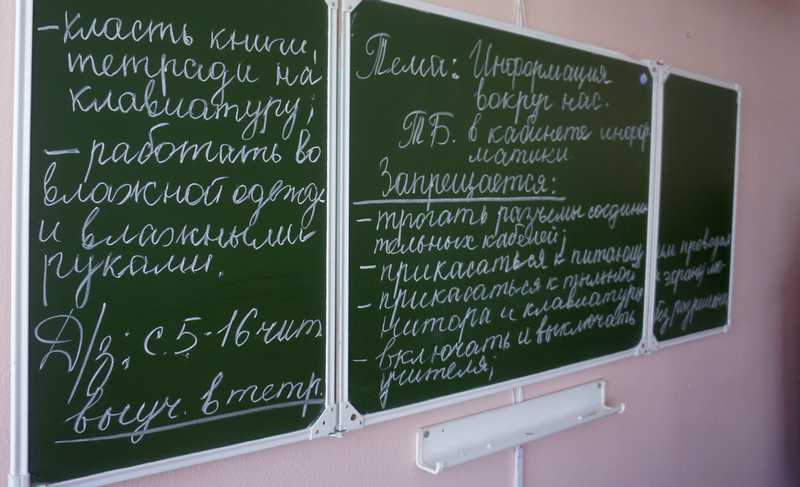 - класть книги,
тетради на
клавиатуру;
- работать во
влажной одежде
и влажными
руками.
Д/з: с. 5-16 чит
выуч. в тетр.
Тема: Информация
вокруг нас.
ТБ. в кабинете инфор-
матики
Запрещается:
- трогать разъемы соедини
тельных кабелей;
- прикасаться к питающим проводам
- прикасаться к тыльной к экрану мо-
нитора и клавиатуры
- включать и выключать без разрешения
учителя;